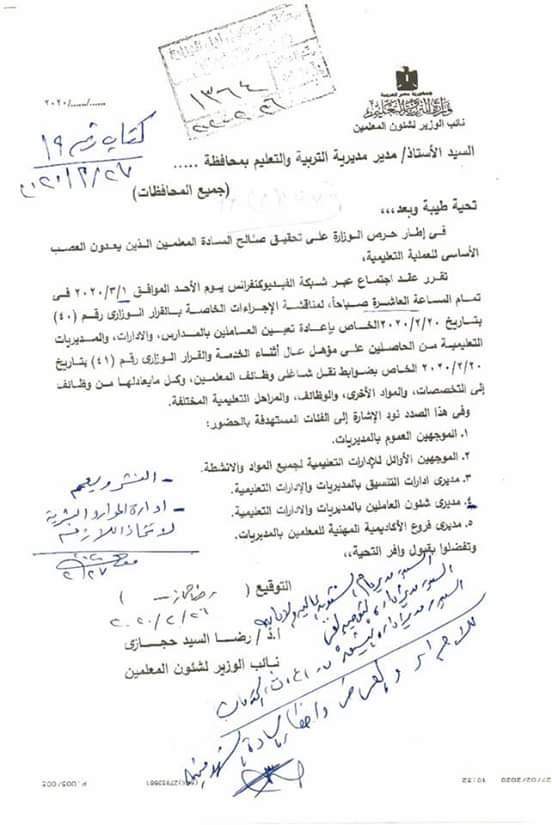 ١٣٦٤
٢٠٢٠٢٢٦
جمهورية مصر العربية
وزارة التربية والتعليم
نائب الوزير لشئون المعلمين
٢٠٢٠/....../......
كتاب رقم ١٩
٢٠٢٠/٢/٢٧
السيد الأستاذ/ مدير مديرية التربية والتعليم بمحافظة .....
(جميع المحافظات)
تحية طيبة وبعد،،،
فى إطار حرص الوزارة على تحقيق صالح السادة المعلمين الذين يعدون العصب
الأساسى للعملية التعليمية،
تقرر عقد اجتماع عبر شبكة الفيديوكنفرانس يوم الأحد الموافق ٢٠٢٠/٣/١ فى
تمام الساعة العاشرة صباحاً، لمناقشة الإجراءات الخاصة بالقرار الوزارى رقم (٤٠)
بتاريخ ٢٠٢٠/٢/٢٠ الخاص بإعادة تعيين العاملين بالمدارس، والادارات، والمديريات
التعليمية من الحاصلين على مؤهل عال أثناء الخدمة والقرار الوزارى رقم (٤١) بتاريخ
٢٠٢٠/٢/٢٠ الخاص بضوابط نقل شاغلى وظائف المعلمين، وكل مايعادلها من وظائف
إلى التخصصات، والمواد الأخرى، والوظائف، والمراحل التعليمية المختلفة.
وفى هذا الصدد نود الإشارة إلى الفئات المستهدفة بالحضور:
١. الموجهين العموم بالمديريات.
٢. الموجهين الأوائل للإدارات التعليمية لجميع المواد والانشطة.
٣. مديرى ادارات التنسيق بالمديريات والإدارات التعليمية.
٤. مديرى شئون العاملين بالمديريات والادارات التعليمية.
٥. مديرى فروع الأكاديمية المهنية للمعلمين بالمديريات.
وتفضلوا بقبول وافر التحية،،
- النشر
- ادارة الموارد البشرية
لاتخاذ اللازم
٢/٢٧
التوقيع ( رضا حجازى )
٢٠٢٠/٢/٢٦
ا.د/ رضا السيد حجازى
نائب الوزير لشئون المعلمين
27/02/2020 10:52
P.005/005